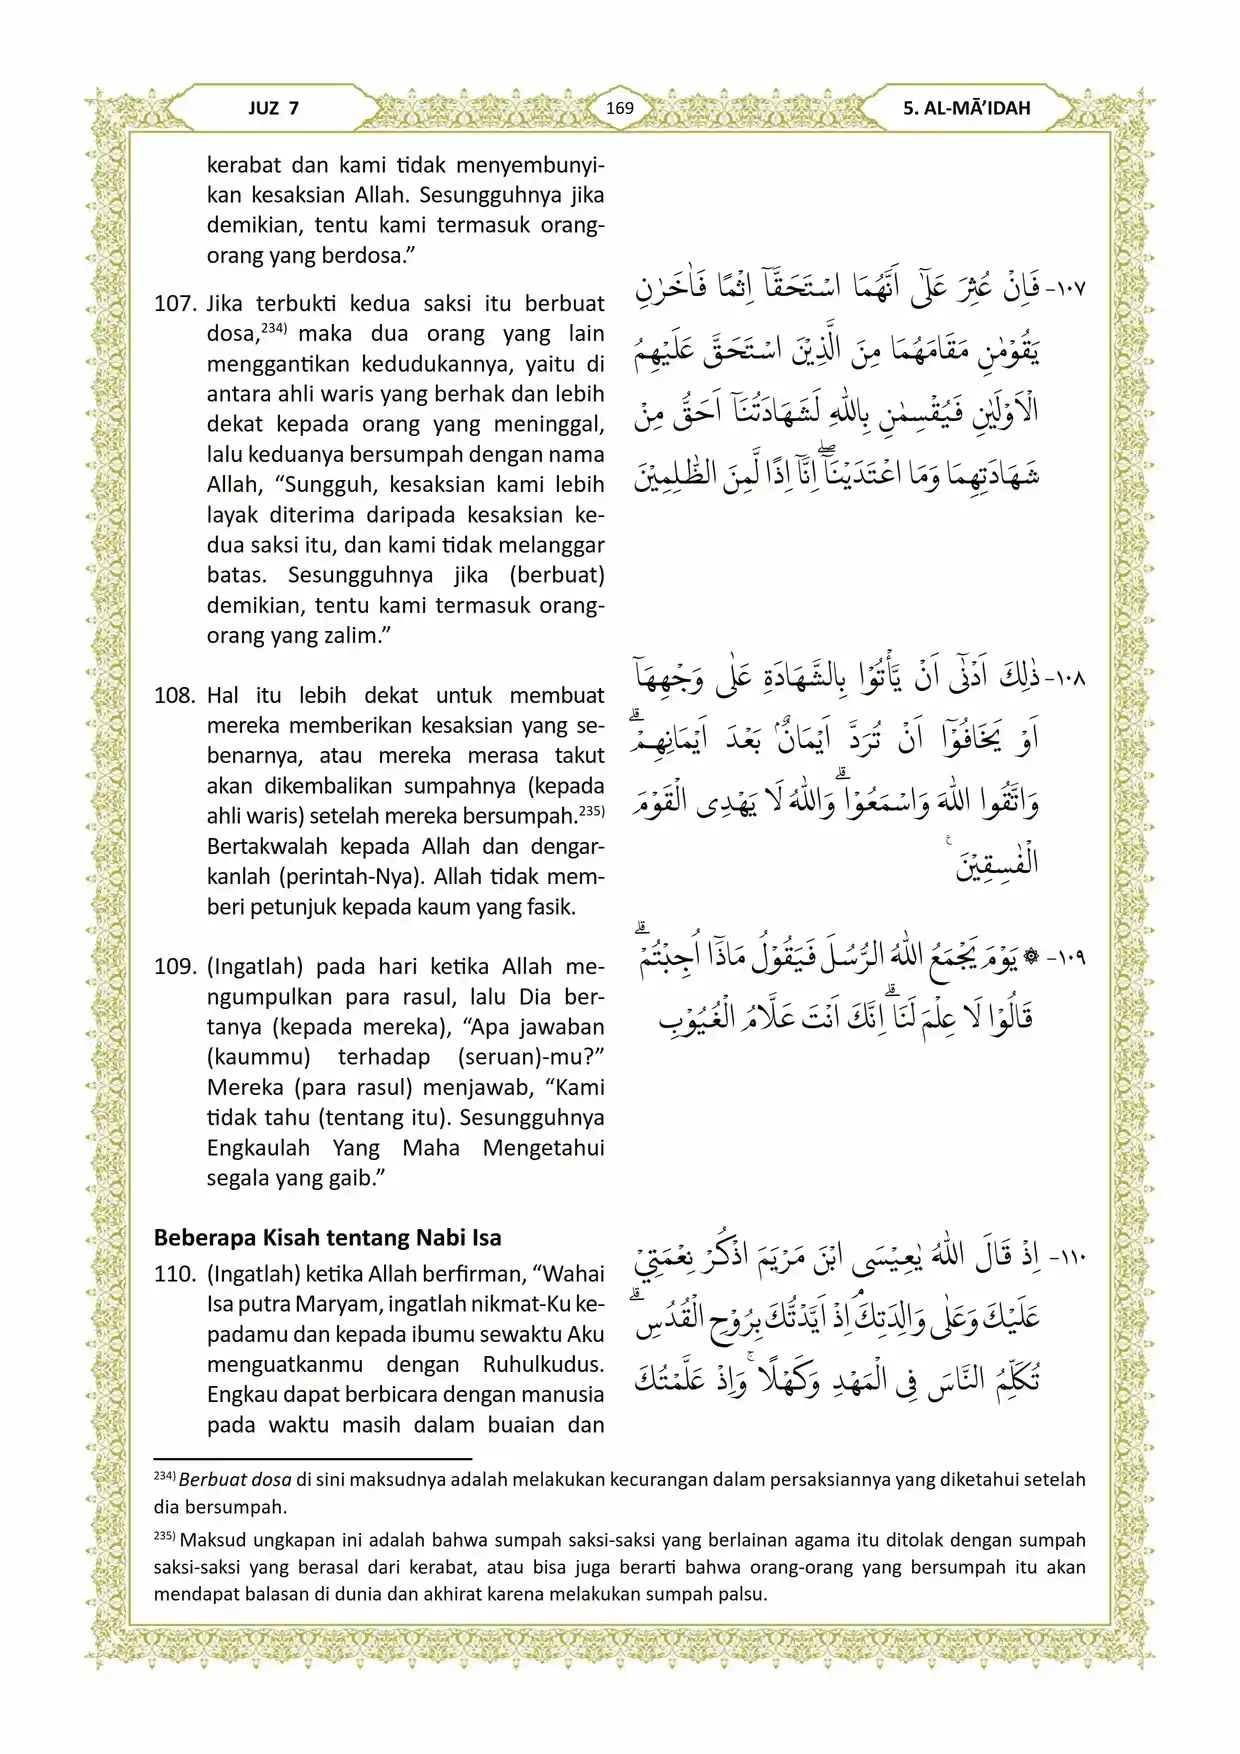 JUZ 7
169
5. AL-MĀ’IDAH
kerabat dan kami tidak menyembunyi-
kan kesaksian Allah. Sesungguhnya jika
demikian, tentu kami termasuk orang-
orang yang berdosa.”
107. Jika terbukti kedua saksi itu berbuat
dosa,²³⁴⁾ maka dua orang yang lain
menggantikan kedudukannya, yaitu di
antara ahli waris yang berhak dan lebih
dekat kepada orang yang meninggal,
lalu keduanya bersumpah dengan nama
Allah, “Sungguh, kesaksian kami lebih
layak diterima daripada kesaksian ke-
dua saksi itu, dan kami tidak melanggar
batas. Sesungguhnya jika (berbuat)
demikian, tentu kami termasuk orang-
orang yang zalim.”
١٠٧- فَاِنْ عُثِرَ عَلٰٓى اَنَّهُمَا اسْتَحَقَّآ اِثْمًا فَاٰخَرٰنِ
يَقُوْمٰنِ مَقَامَهُمَا مِنَ الَّذِيْنَ اسْتَحَقَّ عَلَيْهِمُ
الْاَوْلَيٰنِ فَيُقْسِمٰنِ بِاللّٰهِ لَشَهَادَتُنَآ اَحَقُّ مِنْ
شَهَادَتِهِمَا وَمَا اعْتَدَيْنَآ ۖاِنَّآ اِذًا لَّمِنَ الظّٰلِمِيْنَ
108. Hal itu lebih dekat untuk membuat
mereka memberikan kesaksian yang se-
benarnya, atau mereka merasa takut
akan dikembalikan sumpahnya (kepada
ahli waris) setelah mereka bersumpah.²³⁵⁾
Bertakwalah kepada Allah dan dengar-
kanlah (perintah-Nya). Allah tidak mem-
beri petunjuk kepada kaum yang fasik.
١٠٨- ذٰلِكَ اَدْنٰٓى اَنْ يَّأْتُوْا بِالشَّهَادَةِ عَلٰى وَجْهِهَآ
اَوْ يَخَافُوْٓا اَنْ تُرَدَّ اَيْمَانٌۢ بَعْدَ اَيْمَانِهِمْۗ
وَاتَّقُوا اللّٰهَ وَاسْمَعُوْا ۗوَاللّٰهُ لَا يَهْدِى الْقَوْمَ
الْفٰسِقِيْنَ ࣖ
109. (Ingatlah) pada hari ketika Allah me-
ngumpulkan para rasul, lalu Dia ber-
tanya (kepada mereka), “Apa jawaban
(kaummu) terhadap (seruan)-mu?”
Mereka (para rasul) menjawab, “Kami
tidak tahu (tentang itu). Sesungguhnya
Engkaulah Yang Maha Mengetahui
segala yang gaib.”
١٠٩- ۞ يَوْمَ يَجْمَعُ اللّٰهُ الرُّسُلَ فَيَقُوْلُ مَاذَآ اُجِبْتُمْۗ
قَالُوْا لَا عِلْمَ لَنَاۗ اِنَّكَ اَنْتَ عَلَّامُ الْغُيُوْبِ
Beberapa Kisah tentang Nabi Isa
110. (Ingatlah) ketika Allah berfirman, “Wahai
Isa putra Maryam, ingatlah nikmat-Ku ke-
padamu dan kepada ibumu sewaktu Aku
menguatkanmu dengan Ruhulkudus.
Engkau dapat berbicara dengan manusia
pada waktu masih dalam buaian dan
١١٠- اِذْ قَالَ اللّٰهُ يٰعِيْسَى ابْنَ مَرْيَمَ اذْكُرْ نِعْمَتِيْ
عَلَيْكَ وَعَلٰى وَالِدَتِكَ ۘاِذْ اَيَّدْتُّكَ بِرُوْحِ الْقُدُسِۗ
تُكَلِّمُ النَّاسَ فِى الْمَهْدِ وَكَهْلًا ۚوَاِذْ عَلَّمْتُكَ
²³⁴⁾ Berbuat dosa di sini maksudnya adalah melakukan kecurangan dalam persaksiannya yang diketahui setelah
dia bersumpah.
²³⁵⁾ Maksud ungkapan ini adalah bahwa sumpah saksi-saksi yang berlainan agama itu ditolak dengan sumpah
saksi-saksi yang berasal dari kerabat, atau bisa juga berarti bahwa orang-orang yang bersumpah itu akan
mendapat balasan di dunia dan akhirat karena melakukan sumpah palsu.